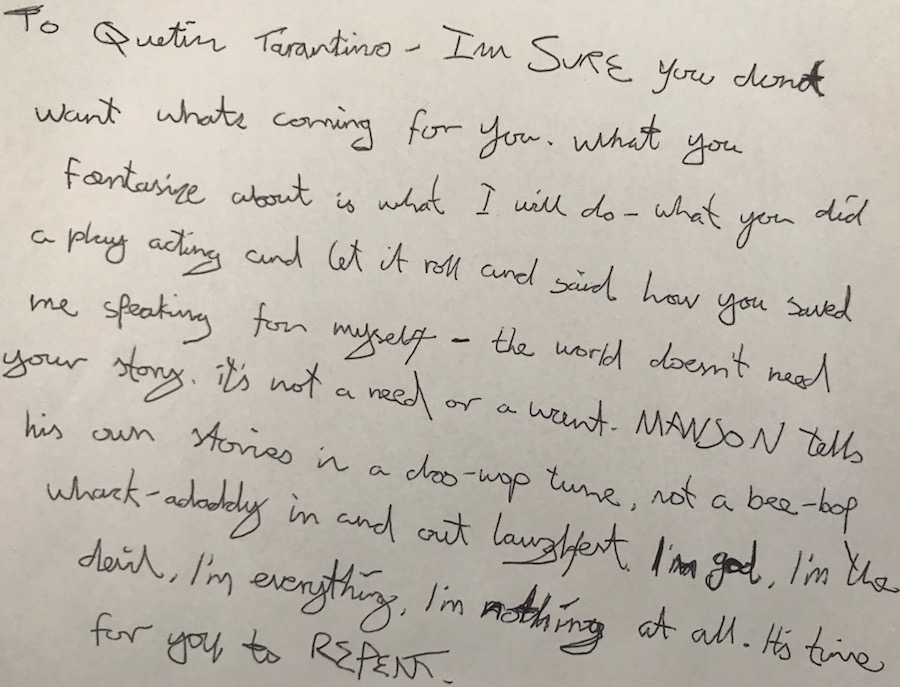 To Quetin Tarantino - Im SURE you dont
want whats coming for you. What you
fantasize about is what I will do - what you did
a play acting and let it roll and said how you saved
me speaking for myself - the world doesn't need
your story. it's not a need or a want. MANSON tells
his own stories in a doo-wop tune, not a bee-bop
whack-adaddy in and out laughfest. I'm god, I'm the
devil, I'm everything, I'm nothing at all. It's time
for you to REPENT.